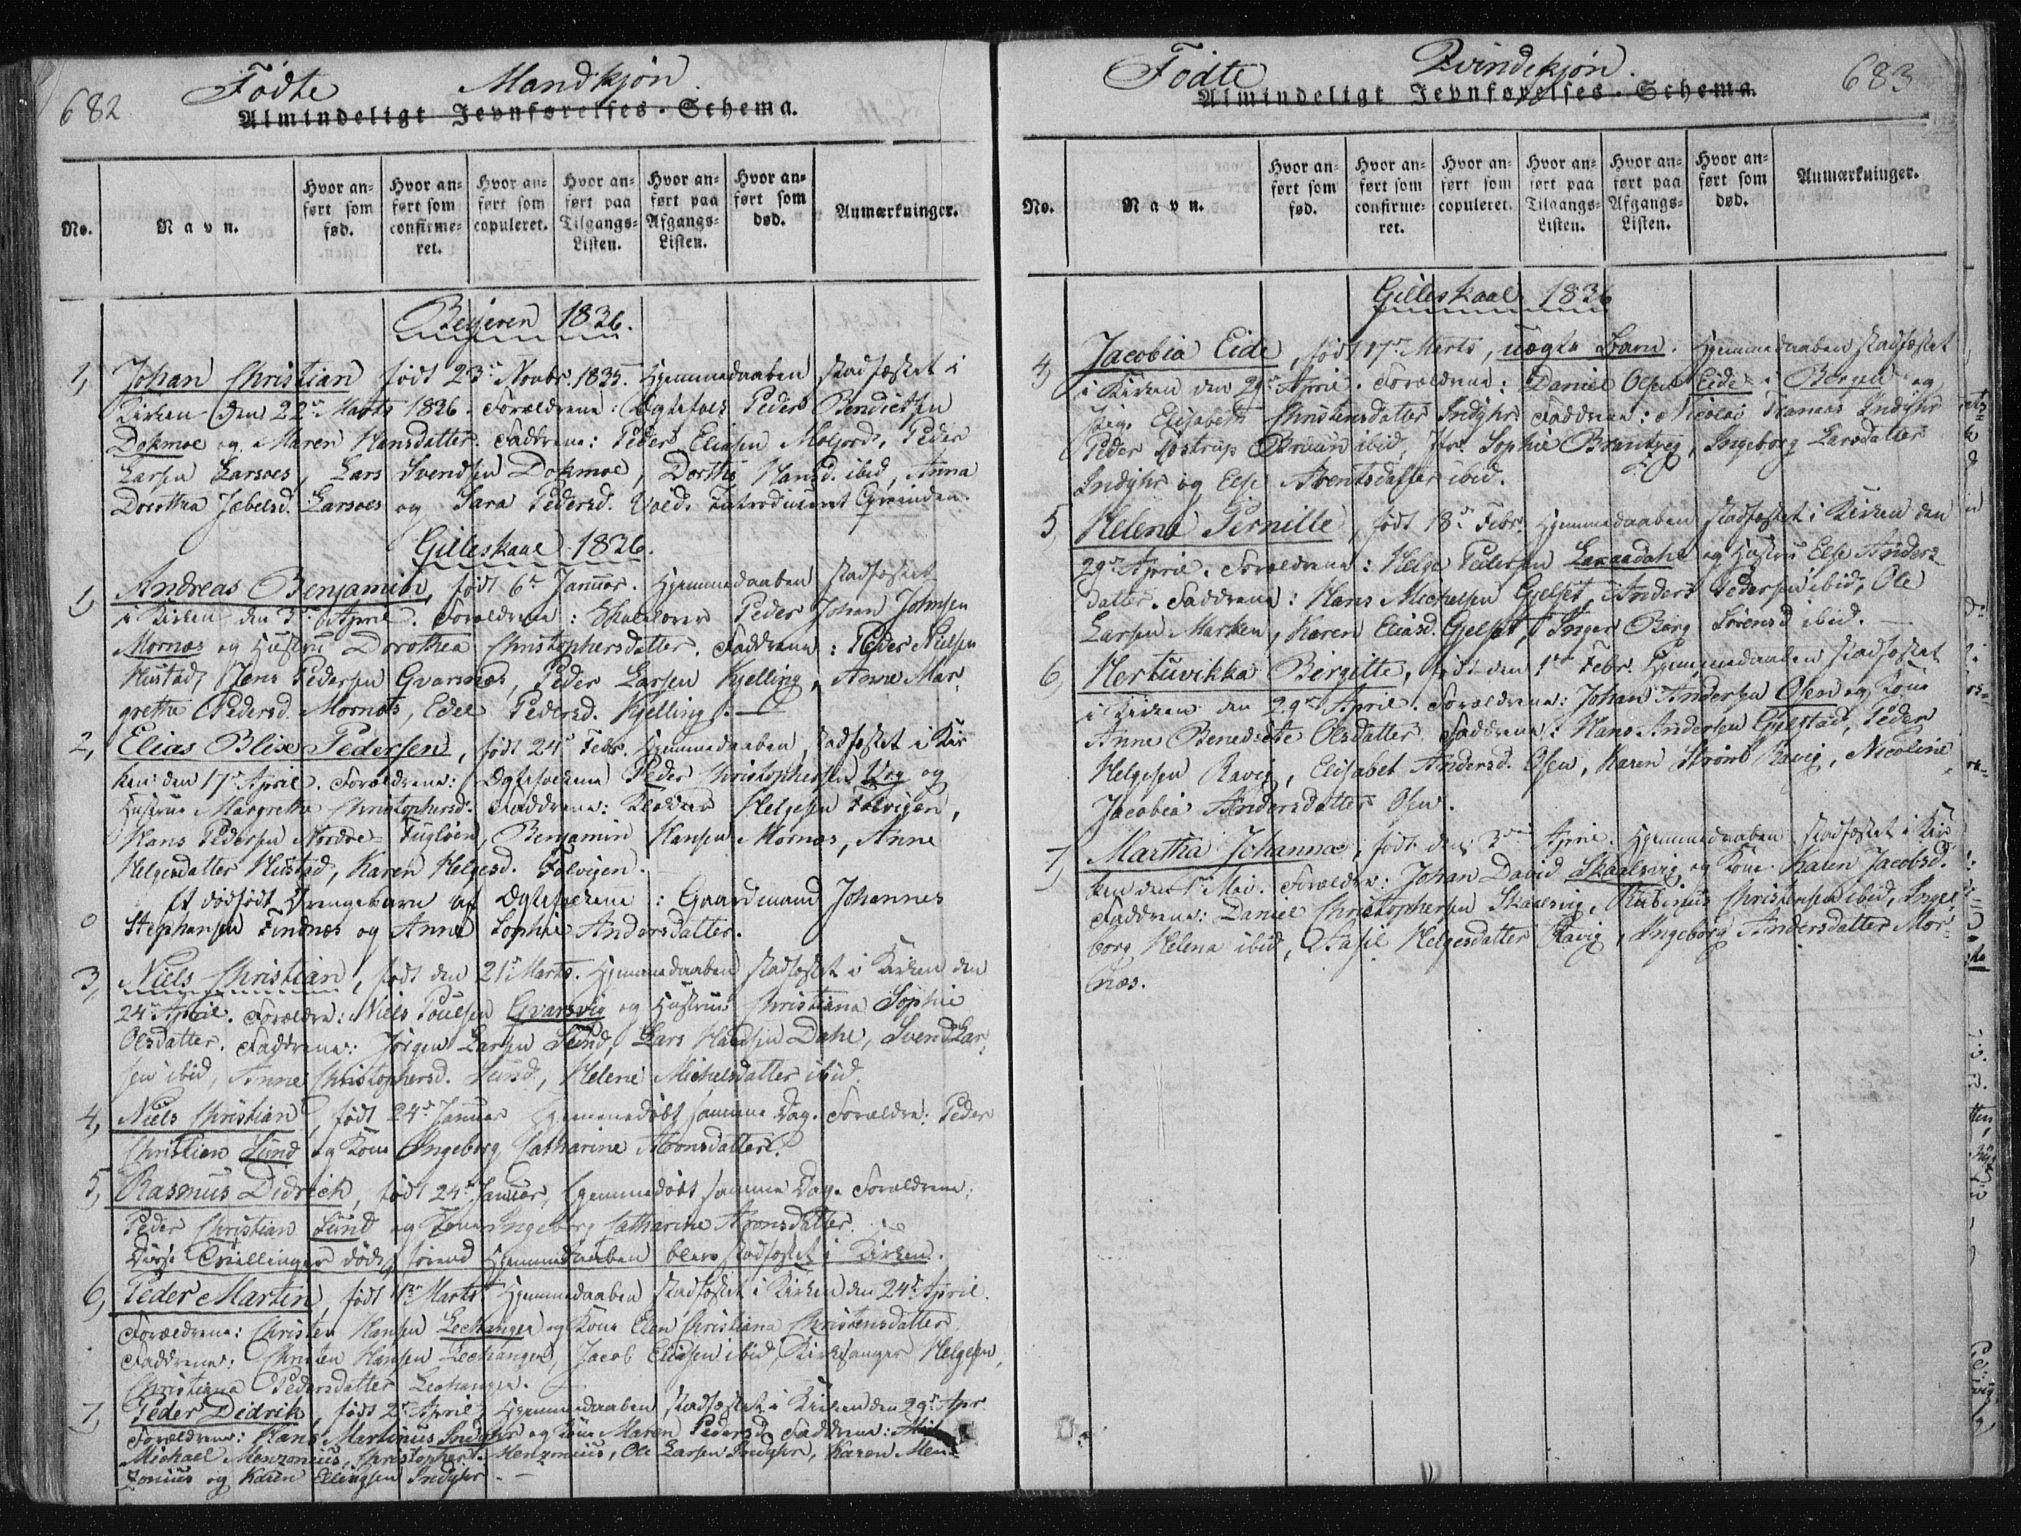 682 Fødte Mandkjøn
Almindeligt Jevnførelses-Schema.
No. Navn. Hvor anført som fød. Hvor anført som confirmeret. Hvor anført som copuleret. Hvor anført paa Tilgangs-Listen. Hvor anført paa Afgangs-Listen. Hvor anført som død. Anmærkninger.
Beyeren 1836.
1, Johan Christian født 23de Novbr. 1835. Hjemmedaaben stadfæstet i
Kirken den 22de Marts 1836. Forældrene: Ægtefolk Peder Bendictsen
Dokmoe og Maren Hansdatter. Faddrene: Peder Eliasen Moljord, Peder
Larsen Larsoes, Lars Svendsen Dokmoe, Dorthe Hansd. ibid, Anna
Dorothea Jebelsd. Larsoes og Sara Pedersd. Vold. Introduceret
Gilleskaal 1836.
1, Andreas Benjamin, født 6te Januar. Hjemmedaaben stadfæstet
i Kirken den 3de April. Forældrene: Skolelærer Peder Johan Johnsen
Mornæs og Hustru Dorothea Christophersdatter. Faddrene: Peder Nielsen
Hustad, Jens Pedersen Gvarnæs, Peder Larsen Kjelling, Anne Mar-
grethe Pedersd. Mornæs, Edel Pedersd. Kjelling.
2, Elias Blix Pedersen, født 24de Febr. Hjemmedaaben stadfæstet i Kir
ken den 17de April. Forældrene: Ægtefolkene Peder Christophersen Vog og
Hustrue Margrethe Christophersd. Faddrene: Helgesen Følvigen,
Hans Pedersen Nordre Fugløen, Benjamin Hansen Mornæs, Anne
Helgesdatter Hustad, Karen Helgesd. Følvigen.
0 Et dødfødt Drengebarn af Ægtefolkene: Gaardmand Johannes
Stephansen Findnæs og Anne Sophie Andersdatter.
3, Niels Christian, født den 21de Marts. Hjemmedaaben stadfæstet i Kirken den
24de April. Forældre: Niels Poulsen Gvarsvig og Hustrue Christiana Sophie
Olsdatter. Faddrene: Jørgen Larsen Sund, Lars Hansen Dahl, Svend Lar-
sen ibid, Anne Christophersd. Sund, Helene Michelsdatter ibid.
4, Niels Christian, født 24de Januar Hjemmedøbt samme Dag. Forældre: Peder
Christian Sund og Kone Ingeborg Catharine Aronsdatter.
5, Rasmus Didrich, født 24de Januar, Hjemmedøbt samme Dag. Forældrene:
Peder Christian Sund og Kone Ingeborg Catharine Aronsdatter.
Disse Tvillinger døde førend Hjemmedaaben blev stadfæstet i Kirken.
6, Peder Martin, født 1ste Marts Hjemmedaaben stadfæstet i Kirken den 24de April.
Forældrene: Christen Hansen Lechangen og Kone Elen Christiana Christensdatter.
Faddrene: Christen Hansen Lechangen, Jacob Eliasen ibid, Kirkesanger Helgesen,
Christiana Pedersdatter Lechangen.
7, Peder Didrik, født 2de April, Hjemmedaaben stadfæstet i Kirken den 29de Apr.
Forældrene: Hans Martinus Indyhr og Kone Maren Pedersd. Faddrene:
Michael Menzonius, Christopher Menzonius, Ole Larsen Indyhr, Karen Men-
zonius og Karen Ellingsen Indyhr.
Fødte Qvindekjøn. 683
Almindeligt Jevnførelses-Schema.
No. Navn. Hvor anført som fød. Hvor anført som confirmeret. Hvor anført som copuleret. Hvor anført paa Tilgangs-Listen. Hvor anført paa Afgangs-Listen. Hvor anført som død. Anmærkninger.
Gilleskaal 1836
4, Jacobia Eide, født 17de Marts, uægte Barn. Hjemmedaaben stadfæstet
i Kirken den 29de April. Forældrene: Daniel Olsen Eide i Bergen og
Pige Elisabeth Christensdatter Indyhr. Faddrene: Nicolai Indyhr
Peder ibid, Jfr. Sophie Brantzeg, Ingeborg Larsdatter
Indyhr og Else Arentsdatter ibid.
5, Helena Pernille, født 18de Febr. Hjemmedaaben stadfæstet i Kirken den
29de April. Forældrene: Helge Pedersen Laxaadahl og Hustru Else Anders-
datter. Faddrene: Hans Michelsen Gjelset, Anders Pedersen ibid, Ole
Larsen Marken, Karen Eliasd. Gjelset, Inger Berg Sørensd ibid.
6, Hertuvikka Birgitte, født den 1ste Febr. Hjemmedaaben stadfæstet
i Kirken den 29de April. Forældrene: Johan Andersen Osen og Kone
Anne Benedicte Olsdatter. Faddrene: Hans Andersen Gjelstad, Peder
Helgesen Ravig, Elisabet Andersd. Osen, Karen Strøm Ravig, Nicoline
Jacobia Andersdatter Osen.
7, Martha Johanna, født den 3die April. Hjemmedaaben stadfæstet i Kir
ken den 1ste Mai. Forældre: Johan David Skaalsvig og Kone Karen Jacobsd.
Faddrene: Daniel Christophersen Skaalsvig, Rubinus Christensen ibid, Inge-
borg Helena ibid, Helgesdatter Ravig, Ingeborg Andersdatter Mor-
næs.